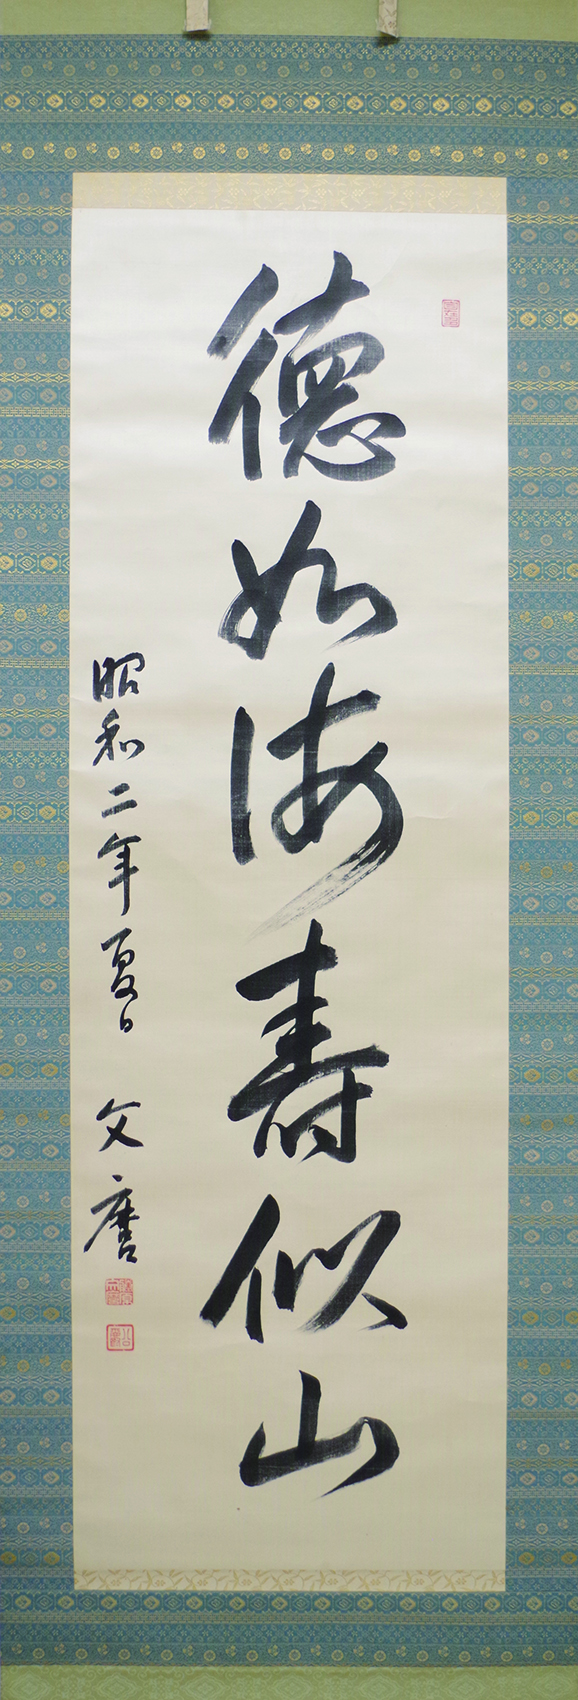 德如海壽似山
昭和二年夏日 文麿